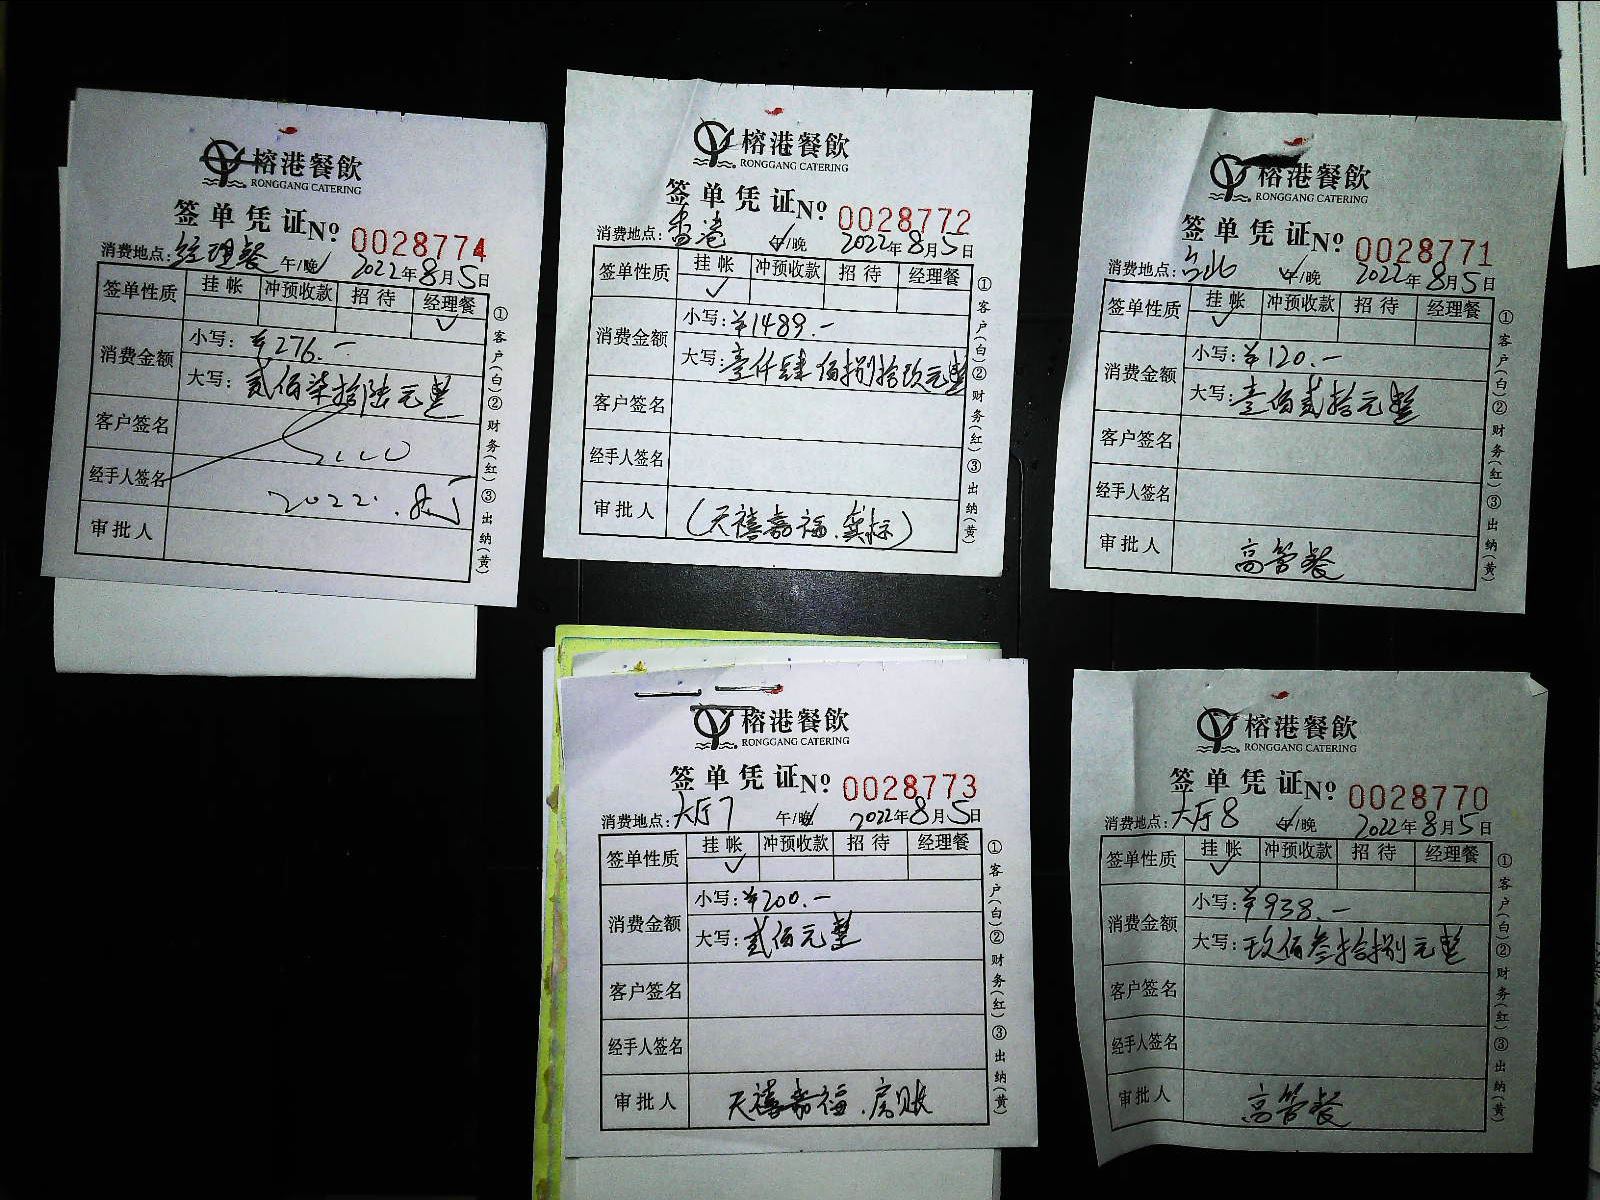 榕港餐飲
RONGGANG CATERING
签单凭证 No 0028774
消费地点: 经理餐 午/晚 2022年8月5日
签单性质 挂帐 冲预收款 招待 经理餐
✓
消费金额 小写: ¥276.-
大写: 贰佰柒拾陆元整
客户签名
经手人签名
2022.8.5
审批人
①客户(白)②财务(红)③出纳(黄)
榕港餐飲
RONGGANG CATERING
签单凭证 No 0028772
消费地点: 香港 午/晚 2022年8月5日
签单性质 挂帐 冲预收款 招待 经理餐
✓
消费金额 小写: ¥1489.-
大写: 壹仟肆佰捌拾玖元整
客户签名
经手人签名
审批人 (天禧嘉福.奠标)
①客户(白)②财务(红)③出纳(黄)
榕港餐飲
RONGGANG CATERING
签单凭证 No 0028771
消费地点: 台北 午/晚 2022年8月5日
签单性质 挂帐 冲预收款 招待 经理餐
✓
消费金额 小写: ¥120.-
大写: 壹佰贰拾元整
客户签名
经手人签名
审批人 高管餐
①客户(白)②财务(红)③出纳(黄)
榕港餐飲
RONGGANG CATERING
签单凭证 No 0028773
消费地点: 大厅7 午/晚 2022年8月5日
签单性质 挂帐 冲预收款 招待 经理餐
✓
消费金额 小写: ¥200.-
大写: 贰佰元整
客户签名
经手人签名
审批人 天禧嘉福.房账
①客户(白)②财务(红)③出纳(黄)
榕港餐飲
RONGGANG CATERING
签单凭证 No 0028770
消费地点: 大厅8 午/晚 2022年8月5日
签单性质 挂帐 冲预收款 招待 经理餐
✓
消费金额 小写: ¥938.-
大写: 玖佰叁拾捌元整
客户签名
经手人签名
审批人 高管餐
①客户(白)②财务(红)③出纳(黄)